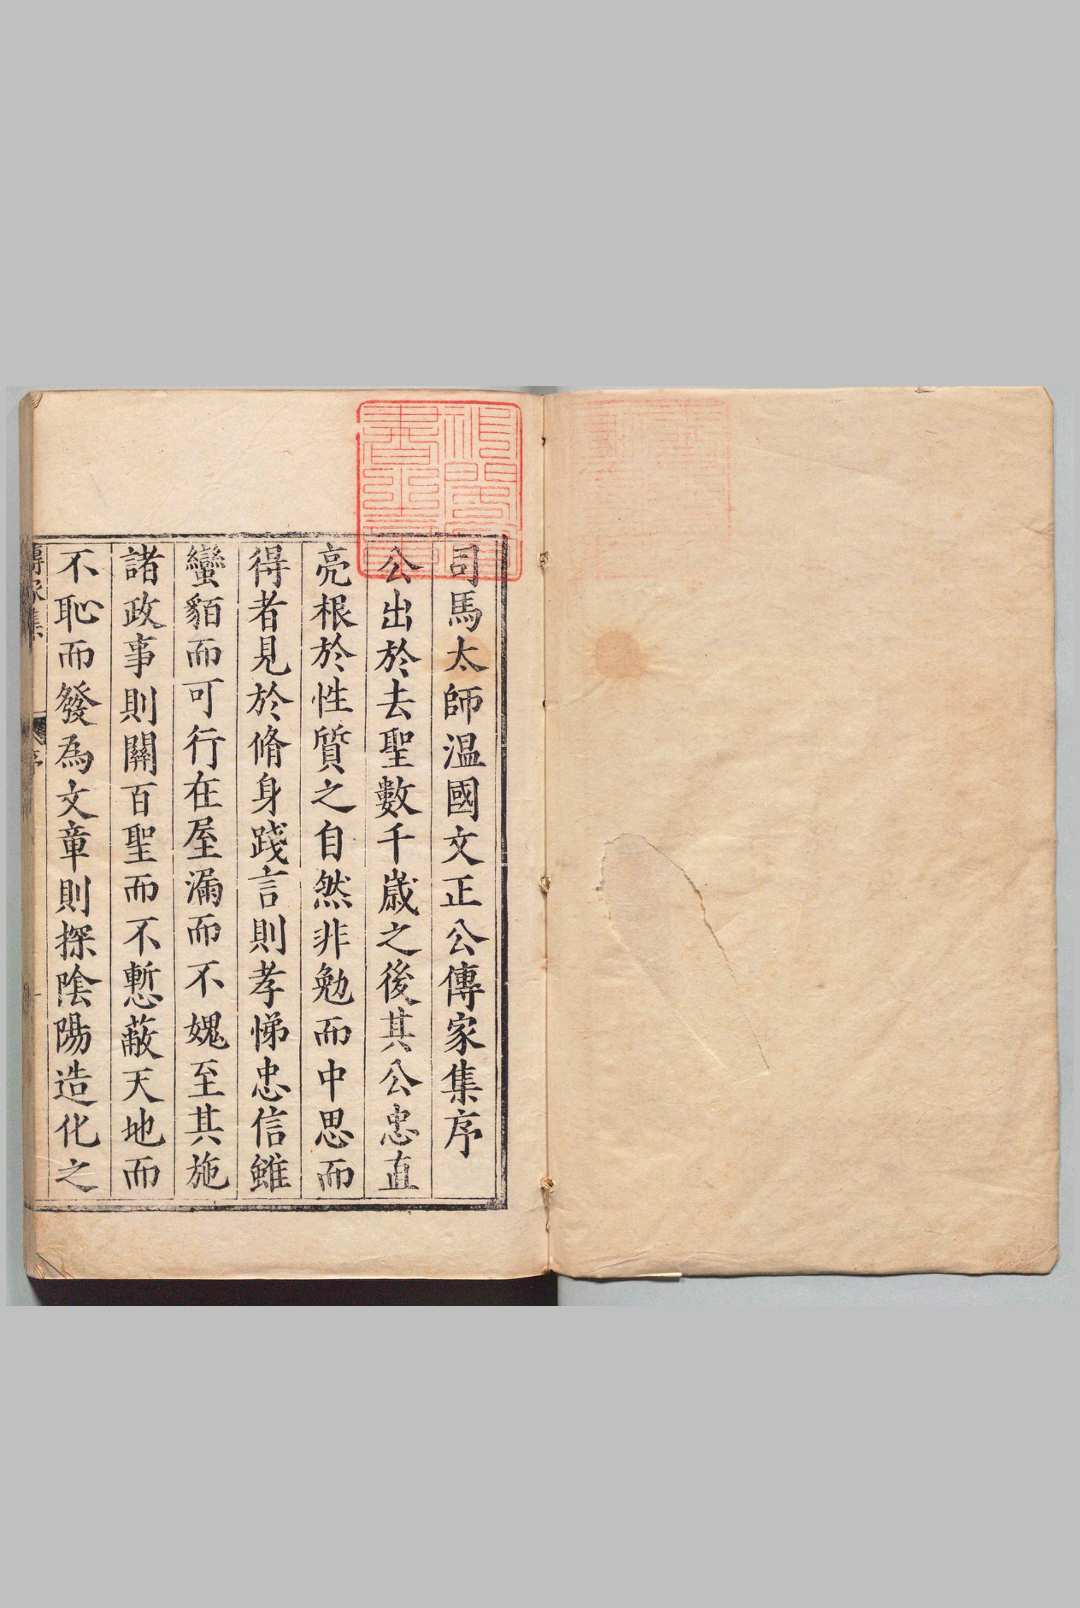 司馬太師溫國文正公傳家集序
公出於去聖數千歲之後其公忠直
亮根於性質之自然非勉而中思而
得者見於脩身踐言則孝悌忠信雖
蠻貊而可行在屋漏而不媿至其施
諸政事則關百聖而不慙蔽天地而
不恥而發為文章則探陰陽造化之
傳家集
序